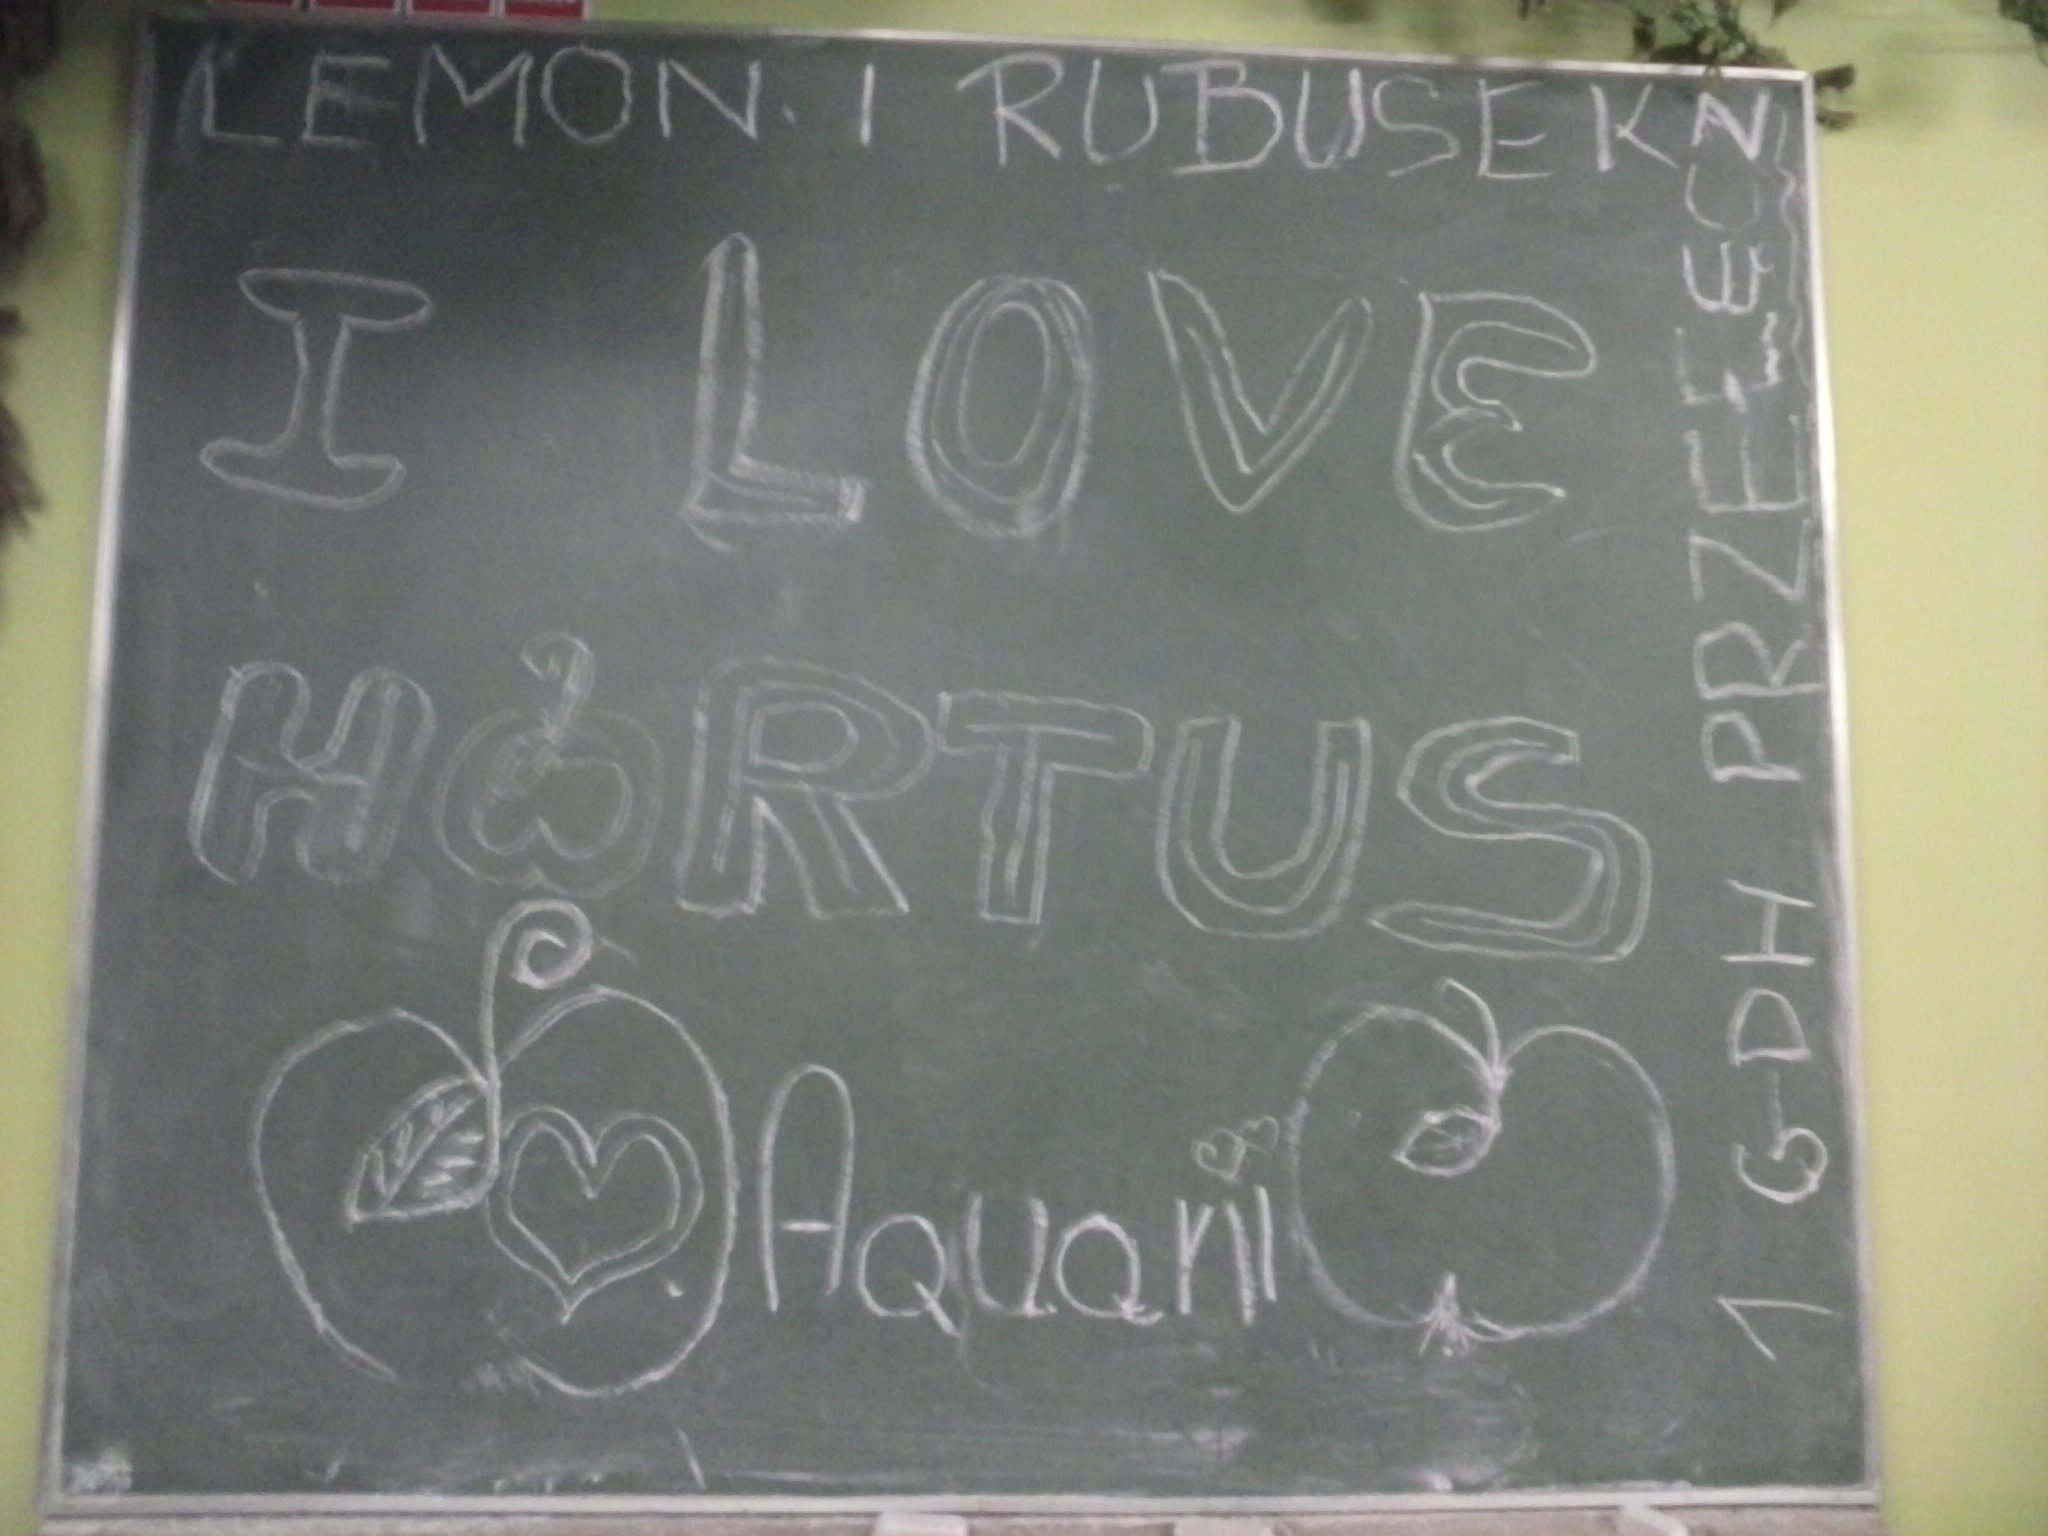 LEMON. I RUBUSEK
I LOVE
HORTUS
Aquarii
1 G-DH PRZEŁĘCZ